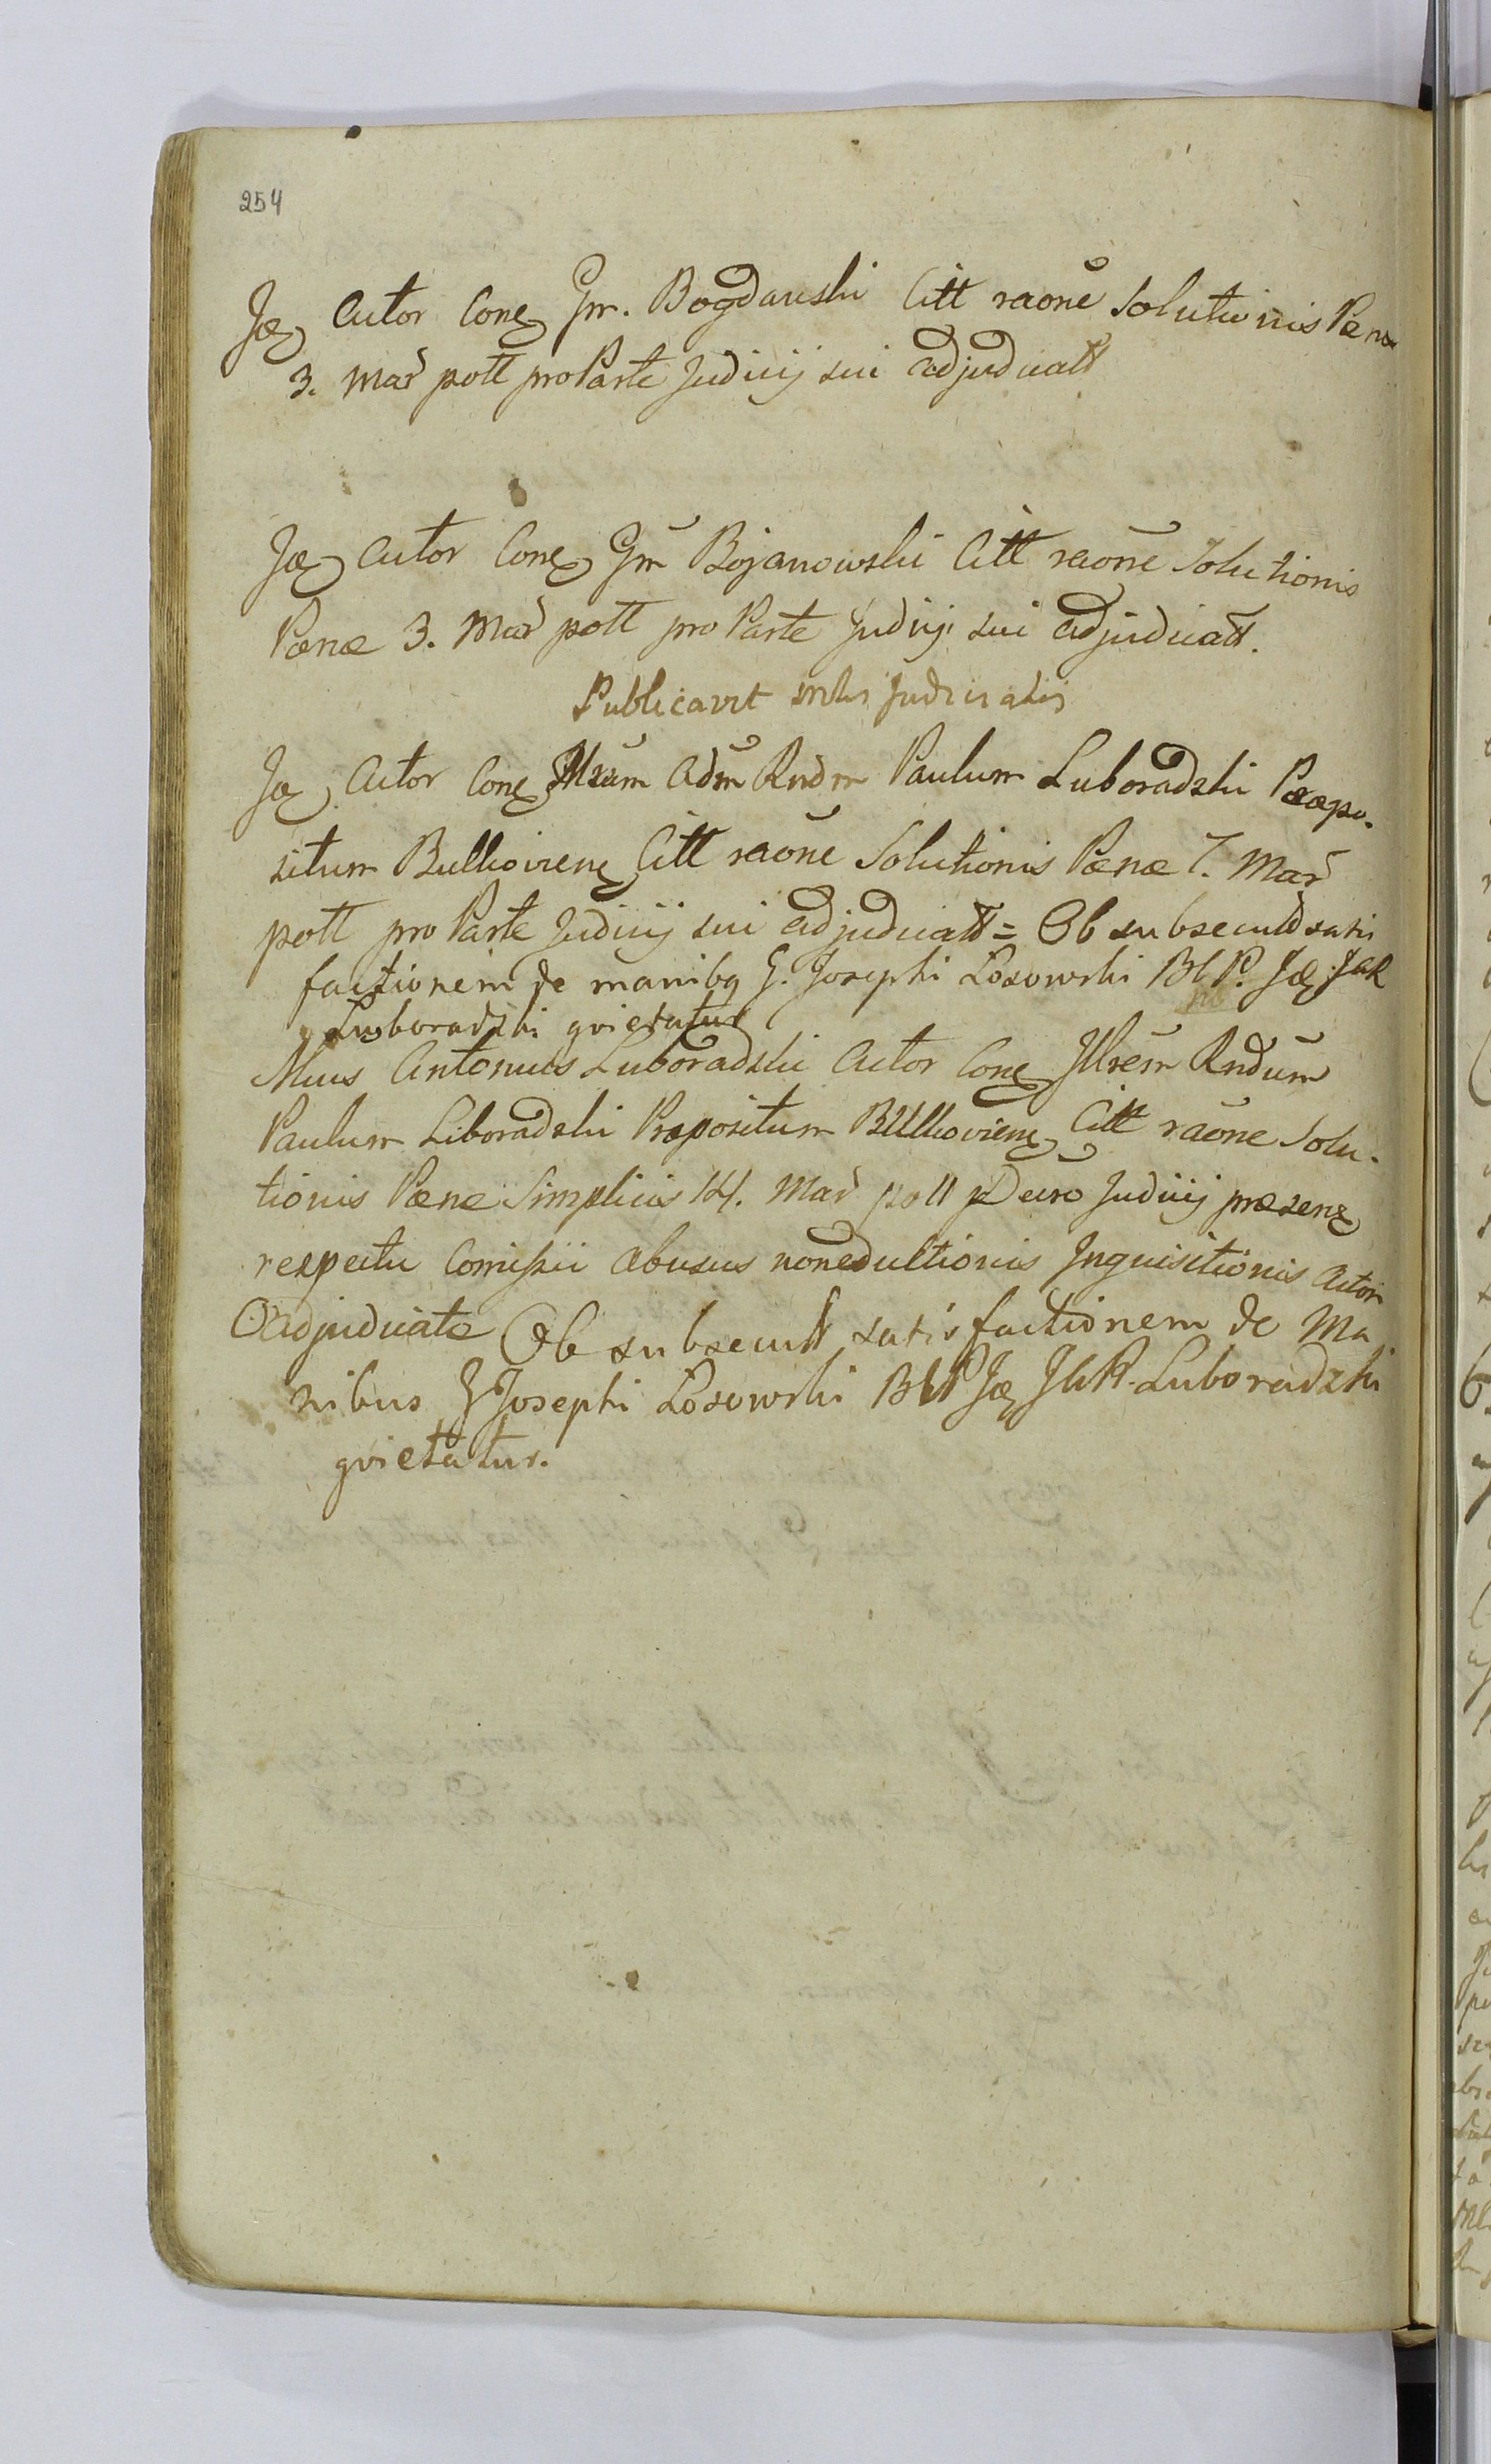 254
Jdẽ Actor Conẽ Gm. Bogdanski Citt raõne Solutionis Pænæ
3. Mar poll pro Parte Judicij sui adjudicatt
Jdẽ Actor Conẽ Gm Bojanowski Citt raõne Solutionis
Pænæ 3. Mar poll pro Parte Judicij sui adjudicatt.
Publicavit Mlis Judicialis
Actor Conẽ Adm Rndm Paulum Luboradzki Præpo-
situm Bulkovienẽ Citt raõne Solutionis Pænæ 7. Mar
poll pro Parte Judicij sui adjudicatt = Ob subsecutt satis
factionem de manibq G. Josephi Łosowski
Luboradzki qvietatur
Antonius Luboradzki Actor Conẽ Rndum
Paulum Liboradzki Præpositum Bulkovienẽ Citt raõne Solu-
tionis Pænæ Simplicis 14. Mar poll Judicij præsenẽ
respectu Comissii abusus non eductionis Inquisitionis Actori
adjudicate Ob subsecutt satisfactionem de Ma
nibus G Josephi Łosowski Luboradzki
qvietatur.